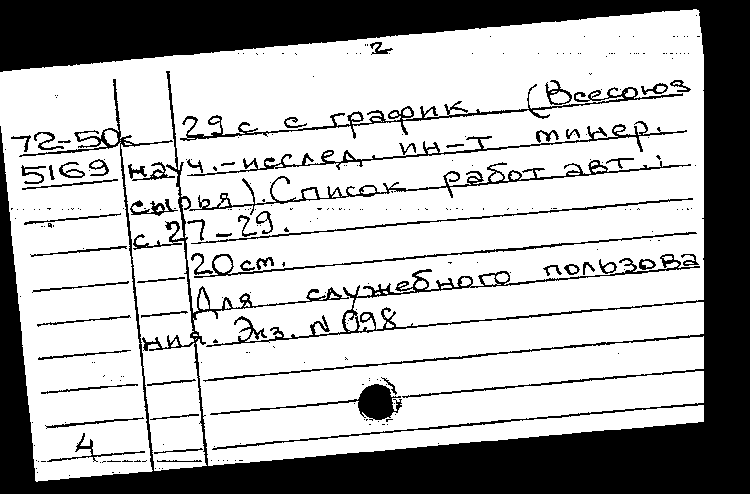 2
72-50с 29 с. с график. (Всесоюз
5169 науч.-исслед. ин-т минер.
сырья). Список работ авт.:
с. 27-29.
20 см.
Для служебного пользова
ния. Экз. N 098.
4